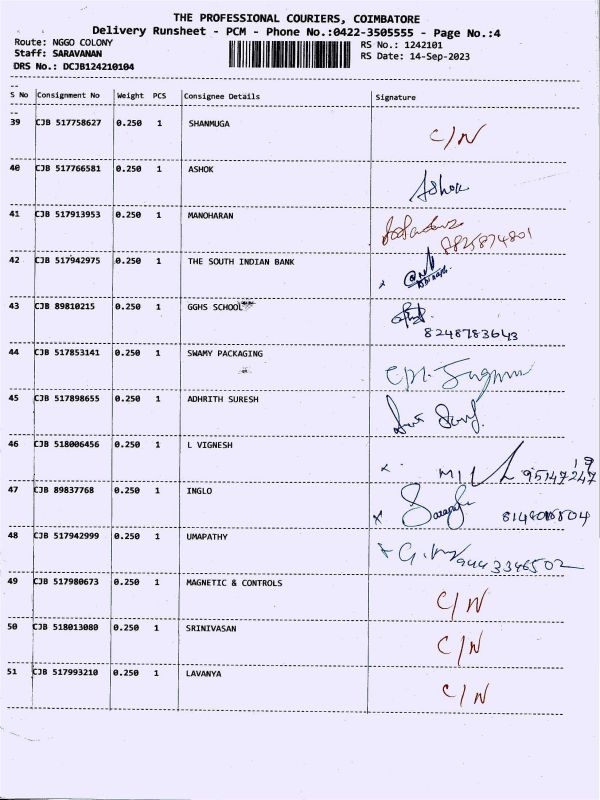 THE PROFESSIONAL COURIERS, COIMBATORE
Delivery Runsheet - PCM - Phone No.:0422-3505555 - Page No.:4
Route: NGGO COLONY RS No.: 1242101
Staff: SARAVANAN RS Date: 14-Sep-2023
DRS No.: DCJB124210104
--
S No Consignment No Weight PCS Consignee Details Signature
--
39 CJB 517758627 0.250 1 SHANMUGA C/N
40 CJB 517766581 0.250 1 ASHOK Ashok
41 CJB 517913953 0.250 1 MANOHARAN
9825874801
42 CJB 517942975 0.250 1 THE SOUTH INDIAN BANK
43 CJB 89810215 0.250 1 GGHS SCHOOL
8248783643
44 CJB 517853141 0.250 1 SWAMY PACKAGING
45 CJB 517898655 0.250 1 ADHRITH SURESH
46 CJB 518006456 0.250 1 L VIGNESH
47 CJB 89837768 0.250 1 INGLO
48 CJB 517942999 0.250 1 UMAPATHY 9443346502
49 CJB 517980673 0.250 1 MAGNETIC & CONTROLS C/N
50 CJB 518013080 0.250 1 SRINIVASAN C/N
51 CJB 517993210 0.250 1 LAVANYA C/N